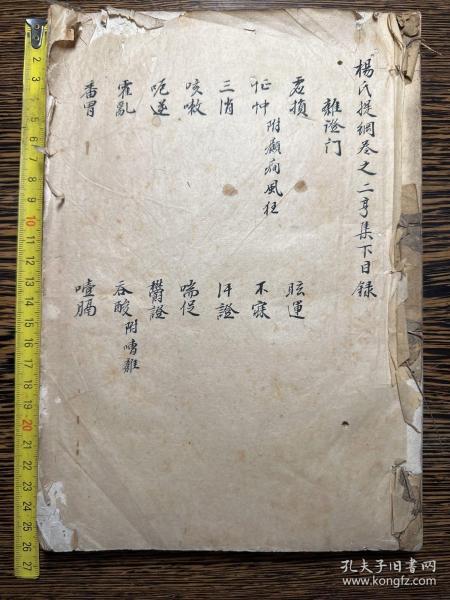 楊氏提綱卷之二亨集下目錄
雜證门
虛損
眩運
怔忡 附癲痫風狂
不寐
三消
汗證
咳嗽
喘促
呃逆
鬱證
霍亂
吞酸 附嘈雜
番胃
噎膈
1 2 3 4 5 6 7 8 9 10 11 12 13 14 15 16 17 18 19 20 21 22 23 24 25 26 27
孔夫子旧书网
www.kongfz.com